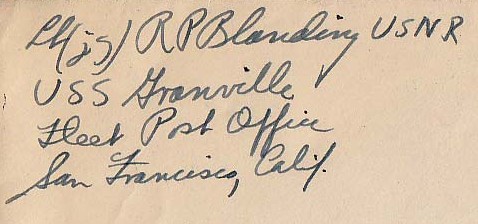 Lt(jg) R P Blanding USNR
USS Granville
Fleet Post Office
San Francisco, Calif.